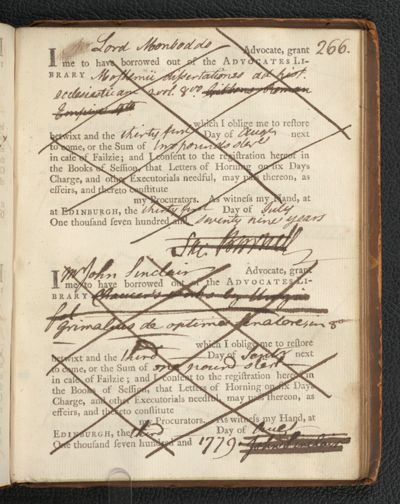 266.
I Lord Monboddo Advocate, grant
me to have borrowed out of the ADVOCATES LI-
BRARY Moshemii dissertationes ad hist.
ecclesiasticam vol. 8vo
Empire 4to
which I oblige me to restore
betwixt and the thirty first Day of Augst next
to come, or the Sum of two pounds sterl
in case of Failzie; and I consent to the registration hereof in
the Books of Session, that Letters of Horning on six Days
Charge, and other Executorials needful, may pass thereon, as
effeirs, and thereto constitute
my Procurators. As witness my Hand, at
at EDINBURGH, the thirty first Day of July
One thousand seven hundred and seventy nine years
I Mr John Sinclair Advocate, grant
me to have borrowed out of the ADVOCATES LI-
BRARY Chaucer's works by
fol
Grimalius de optimo senatore, in 8o
which I oblige me to restore
betwixt and the third Day of Septr next
to come, or the Sum of one pound sterl
in case of Failzie; and I consent to the registration hereof in
the Books of Session, that Letters of Horning on six Days
Charge, and other Executorials needful, may pass thereon, as
effeirs, and thereto constitute
my Procurators. As witness my Hand, at
EDINBURGH, the third Day of Augst
One thousand seven hundred and 1779 John Sinclair